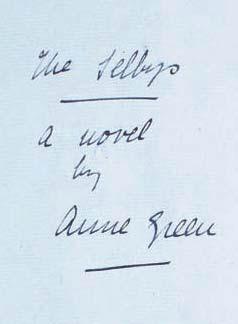 The Selbys
a novel
by
Anne Green